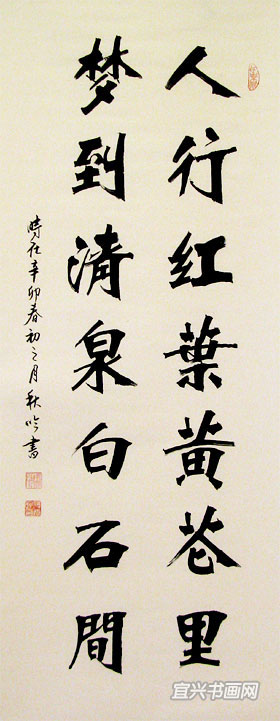 人行红葉黄花里
梦到清泉白石間
時在辛卯春初之月秋吟書
宜兴书画网